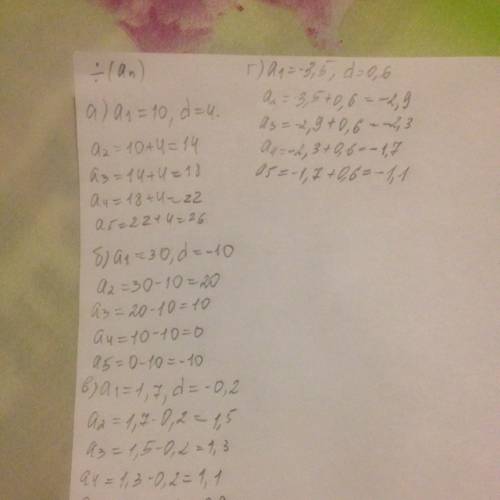 ÷(an)
а) a1=10, d=4.
a2=10+4=14
a3=14+4=18
a4=18+4=22
a5=22+4=26
б) a1=30, d=-10
a2=30-10=20
a3=20-10=10
a4=10-10=0
a5=0-10=-10
в) a1=1,7, d=-0,2
a2=1,7-0,2=1,5
a3=1,5-0,2=1,3
a4=1,3-0,2=1,1
г) a1=-3,5, d=0,6
a2=3,5+0,6=-2,9
a3=-2,9+0,6=-2,3
a4=-2,3+0,6=-1,7
a5=-1,7+0,6=-1,1